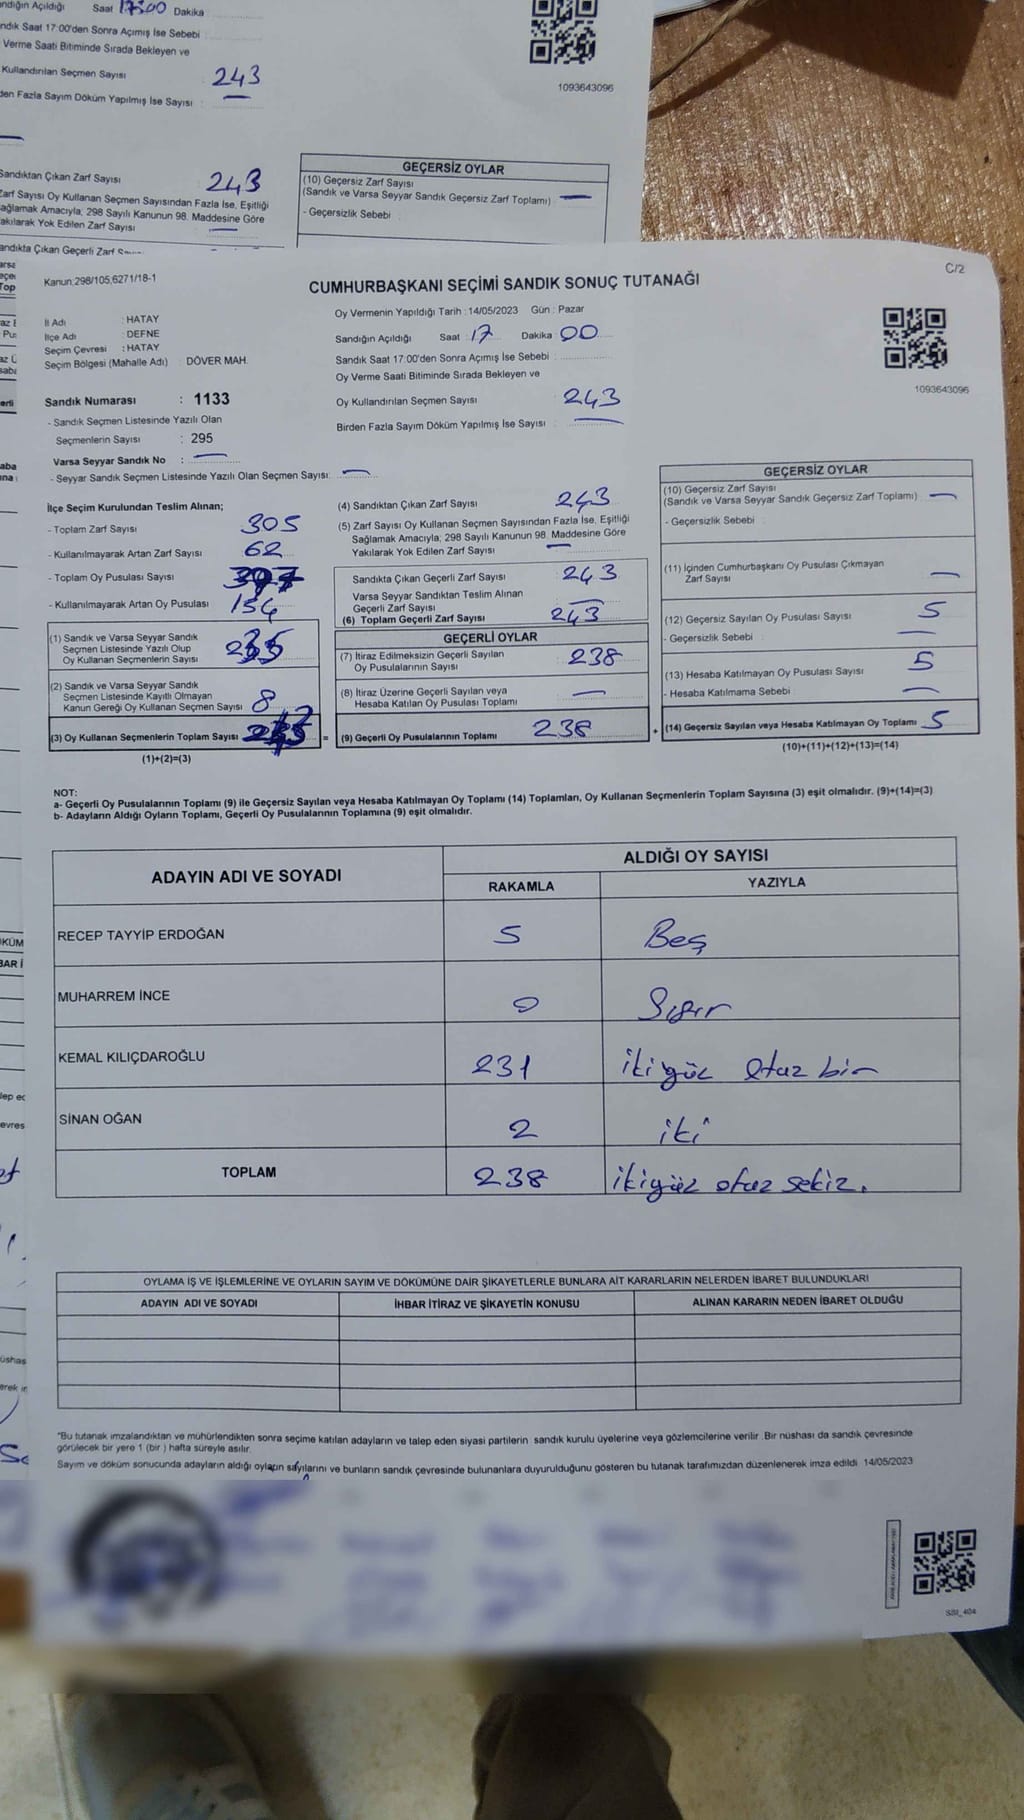 ndığın Açıldığı Saat 17:00 Dakika
ndık Saat 17:00'den Sonra Açımış İse Sebebi
Verme Saati Bitiminde Sırada Bekleyen ve
Kullandırılan Seçmen Sayısı 243
den Fazla Sayım Döküm Yapılmış İse Sayısı : —
1093643096
Sandıktan Çıkan Zarf Sayısı 243
Zarf Sayısı Oy Kullanan Seçmen Sayısından Fazla İse, Eşitliği
ağlamak Amacıyla; 298 Sayılı Kanunun 98. Maddesine Göre
akılarak Yok Edilen Zarf Sayısı —
andıkta Çıkan Geçerli Zarf
GEÇERSİZ OYLAR
(10) Geçersiz Zarf Sayısı
(Sandık ve Varsa Seyyar Sandık Geçersiz Zarf Toplamı) —
- Geçersizlik Sebebi
C/2
Kanun:298/105,6271/18-1
CUMHURBAŞKANI SEÇİMİ SANDIK SONUÇ TUTANAĞI
İl Adı : HATAY
İlçe Adı : DEFNE
Seçim Çevresi : HATAY
Seçim Bölgesi (Mahalle Adı) : DÖVER MAH.
Sandık Numarası : 1133
- Sandık Seçmen Listesinde Yazılı Olan
Seçmenlerin Sayısı : 295
Varsa Seyyar Sandık No : —
- Seyyar Sandık Seçmen Listesinde Yazılı Olan Seçmen Sayısı: —
Oy Vermenin Yapıldığı Tarih : 14/05/2023 Gün : Pazar
Sandığın Açıldığı Saat : 17 Dakika : 00
Sandık Saat 17:00'den Sonra Açımış İse Sebebi :
Oy Verme Saati Bitiminde Sırada Bekleyen ve
Oy Kullandırılan Seçmen Sayısı : 243
Birden Fazla Sayım Döküm Yapılmış İse Sayısı : —
1093643096
İlçe Seçim Kurulundan Teslim Alınan;
- Toplam Zarf Sayısı 305
- Kullanılmayarak Artan Zarf Sayısı 62
- Toplam Oy Pusulası Sayısı
- Kullanılmayarak Artan Oy Pusulası 154
(1) Sandık ve Varsa Seyyar Sandık
Seçmen Listesinde Yazılı Olup
Oy Kullanan Seçmenlerin Sayısı 235
(2) Sandık ve Varsa Seyyar Sandık
Seçmen Listesinde Kayıtlı Olmayan
Kanun Gereği Oy Kullanan Seçmen Sayısı 8
(3) Oy Kullanan Seçmenlerin Toplam Sayısı =
(1)+(2)=(3)
(4) Sandıktan Çıkan Zarf Sayısı 243
(5) Zarf Sayısı Oy Kullanan Seçmen Sayısından Fazla İse, Eşitliği
Sağlamak Amacıyla; 298 Sayılı Kanunun 98. Maddesine Göre
Yakılarak Yok Edilen Zarf Sayısı —
Sandıkta Çıkan Geçerli Zarf Sayısı 243
Varsa Seyyar Sandıktan Teslim Alınan
Geçerli Zarf Sayısı —
(6) Toplam Geçerli Zarf Sayısı 243
GEÇERLİ OYLAR
(7) İtiraz Edilmeksizin Geçerli Sayılan
Oy Pusulalarının Sayısı 238
(8) İtiraz Üzerine Geçerli Sayılan veya
Hesaba Katılan Oy Pusulası Toplamı —
(9) Geçerli Oy Pusulalarının Toplamı 238 +
GEÇERSİZ OYLAR
(10) Geçersiz Zarf Sayısı
(Sandık ve Varsa Seyyar Sandık Geçersiz Zarf Toplamı) —
- Geçersizlik Sebebi :
(11) İçinden Cumhurbaşkanı Oy Pusulası Çıkmayan
Zarf Sayısı —
(12) Geçersiz Sayılan Oy Pusulası Sayısı 5
- Geçersizlik Sebebi : —
(13) Hesaba Katılmayan Oy Pusulası Sayısı 5
- Hesaba Katılmama Sebebi : —
(14) Geçersiz Sayılan veya Hesaba Katılmayan Oy Toplamı 5
(10)+(11)+(12)+(13)=(14)
NOT:
a- Geçerli Oy Pusulalarının Toplamı (9) ile Geçersiz Sayılan veya Hesaba Katılmayan Oy Toplamı (14) Toplamları, Oy Kullanan Seçmenlerin Toplam Sayısına (3) eşit olmalıdır. (9)+(14)=(3)
b- Adayların Aldığı Oyların Toplamı, Geçerli Oy Pusulalarının Toplamına (9) eşit olmalıdır.
ADAYIN ADI VE SOYADI ALDIĞI OY SAYISI
RAKAMLA YAZIYLA
RECEP TAYYİP ERDOĞAN 5 Beş
MUHARREM İNCE 0 Sıfır
KEMAL KILIÇDAROĞLU 231 ikiyüz otuz bir
SİNAN OĞAN 2 iki
TOPLAM 238 ikiyüz otuz sekiz.
OYLAMA İŞ VE İŞLEMLERİNE VE OYLARIN SAYIM VE DÖKÜMÜNE DAİR ŞİKAYETLERLE BUNLARA AİT KARARLARIN NELERDEN İBARET BULUNDUKLARI
ADAYIN ADI VE SOYADI İHBAR İTİRAZ VE ŞİKAYETİN KONUSU ALINAN KARARIN NEDEN İBARET OLDUĞU
*Bu tutanak imzalandıktan ve mühürlendikten sonra seçime katılan adayların ve talep eden siyasi partilerin sandık kurulu üyelerine veya gözlemcilerine verilir. Bir nüshası da sandık çevresinde
görülecek bir yere 1 (bir ) hafta süreyle asılır.
Sayım ve döküm sonucunda adayların aldığı oyların sayılarını ve bunların sandık çevresinde bulunanlara duyurulduğunu gösteren bu tutanak tarafımızdan düzenlenerek imza edildi 14/05/2023
SSI_404